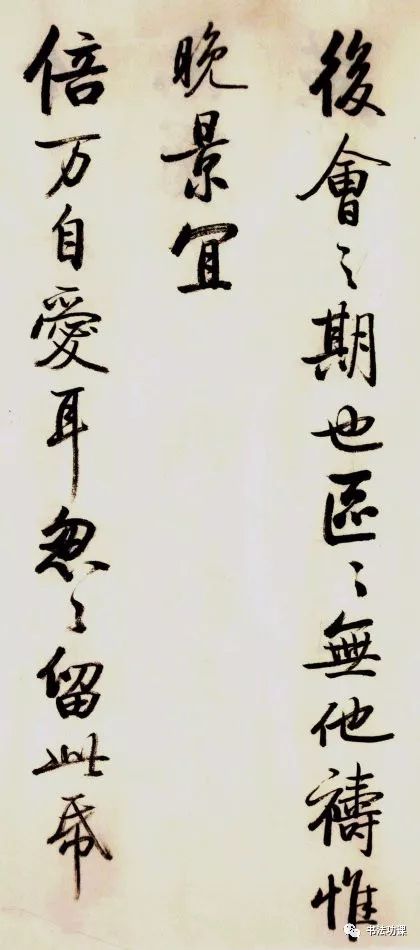 後會之期也區〻無他禱惟
晚景宜
倍万自愛耳怱〻留此奉
书法功课